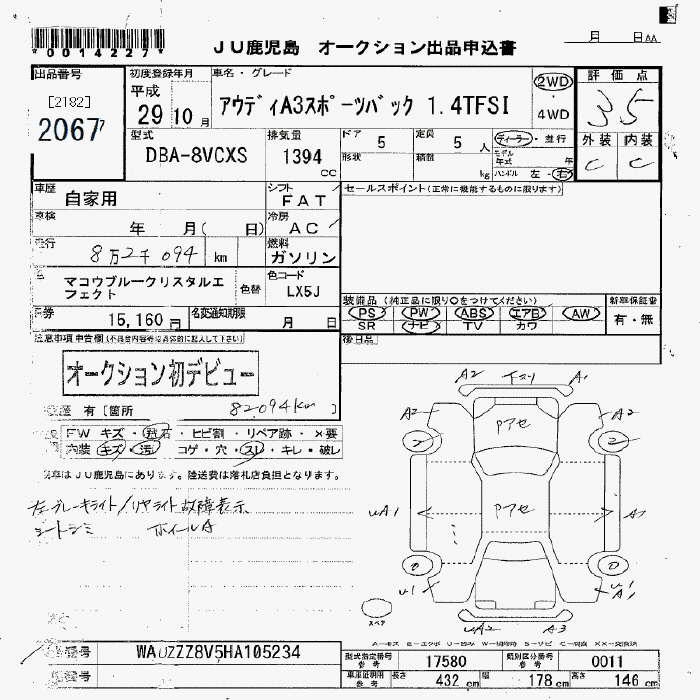 *0014227*
JU鹿児島 オークション出品申込書
月 日
出品番号
[2182]
2067
初度登録年月
平成
29年10月
車名・グレード
アウディA3スポーツバック 1.4TFSI
2WD
・
4WD
評価点
3.5
外装 内装
C C
型式
DBA-8VCXS
排気量
1394
cc
ドア 5
定員 5 人
形状
積載 kg
ディーラー・並行
モデル年式 年
ハンドル 左・右
車歴
自家用
シフト
FAT
セールスポイント(正常に機能するものに限ります)
車検
年 月( 日)
冷房
AC
走行
8万2千094 km
燃料
ガソリン
色
マコウブルークリスタルエフェクト
色替
色コード
LX5J
装備品(純正品に限り○をつけてください)
PS PW ABS エアB AW
SR ナビ TV カワ
新車保証書
有・無
券 15,160円
名変通知期限
月 日
後日品
注意事項 申告欄(不具合内容等は具体的に記入して下さい)
オークション初デビュー
歴 有〔箇所 82094km〕
FW キズ・飛石・ヒビ割・リペア跡・×要
内装 キズ・汚・コゲ・穴・スレ・キレ・破レ
車はJU鹿児島にあります。陸送費は落札店負担となります。
左ブレーキライト/リヤライト故障表示
シートシミ ホイールA
A2 A1
A2 A2
Pアセ
2 2
UA1 Pアセ A1
U1 U1
A1
スペア
UA2 A3
番号 WAUZZZ8V5HA105234
番号
型式指定番号
参考 17580
類別区分番号
参考 0011
車庫証明用
参考
長さ 432cm 幅 178cm 高さ 146cm